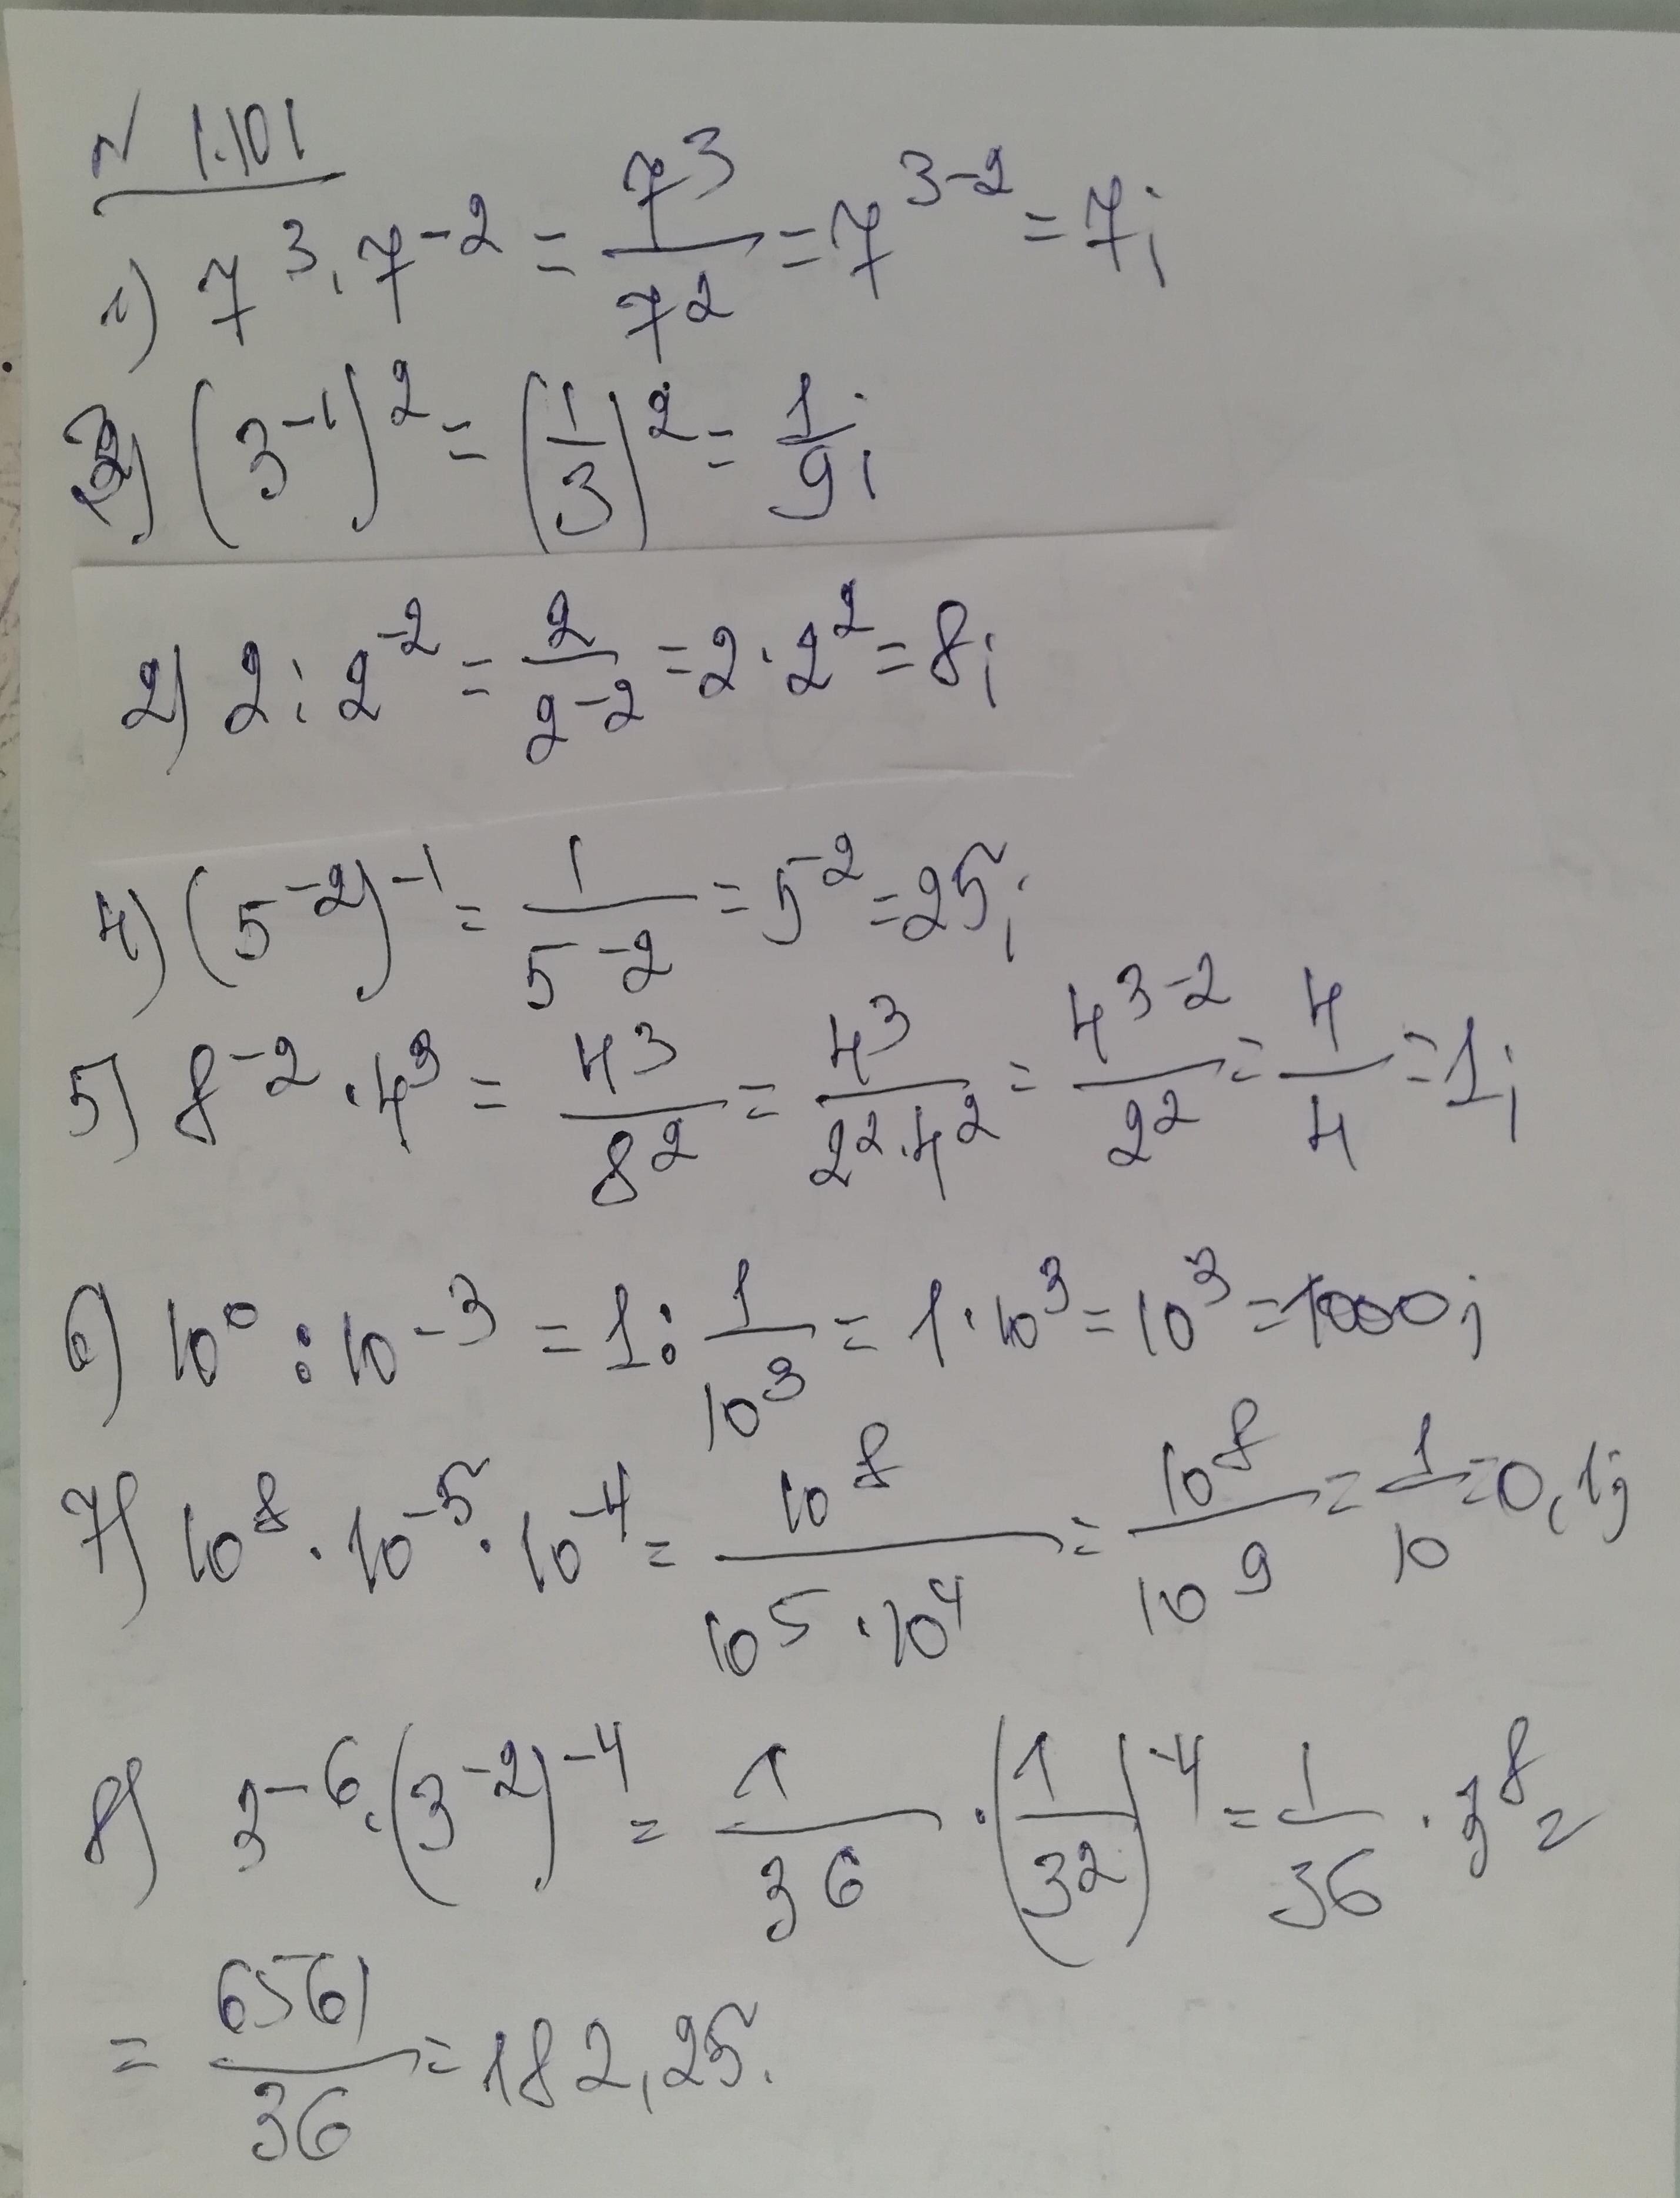 N 1.101
1) 7^3 · 7^-2 = 7^3/7^2 = 7^3-2 = 7;
3) (3^-1)^2 = (1/3)^2 = 1/9;
2) 2 : 2^-2 = 2/2^-2 = 2 · 2^2 = 8;
4) (5^-2)^-1 = 1/5^-2 = 5^2 = 25;
5) 8^-2 · 4^3 = 4^3/8^2 = 4^3/2^2 · 4^2 = 4^3-2/2^2 = 4/4 = 1;
6) 10^0 : 10^-3 = 1 : 1/10^3 = 1 · 10^3 = 10^3 = 1000;
7) 10^8 · 10^-5 · 10^-4 = 10^8/10^5 · 10^4 = 10^8/10^9 = 1/10 = 0,1;
8) 3^-6 · (3^-2)^-4 = 1/36 · (1/32)^-4 = 1/36 · 3^8 =
= 6561/36 = 182,25.